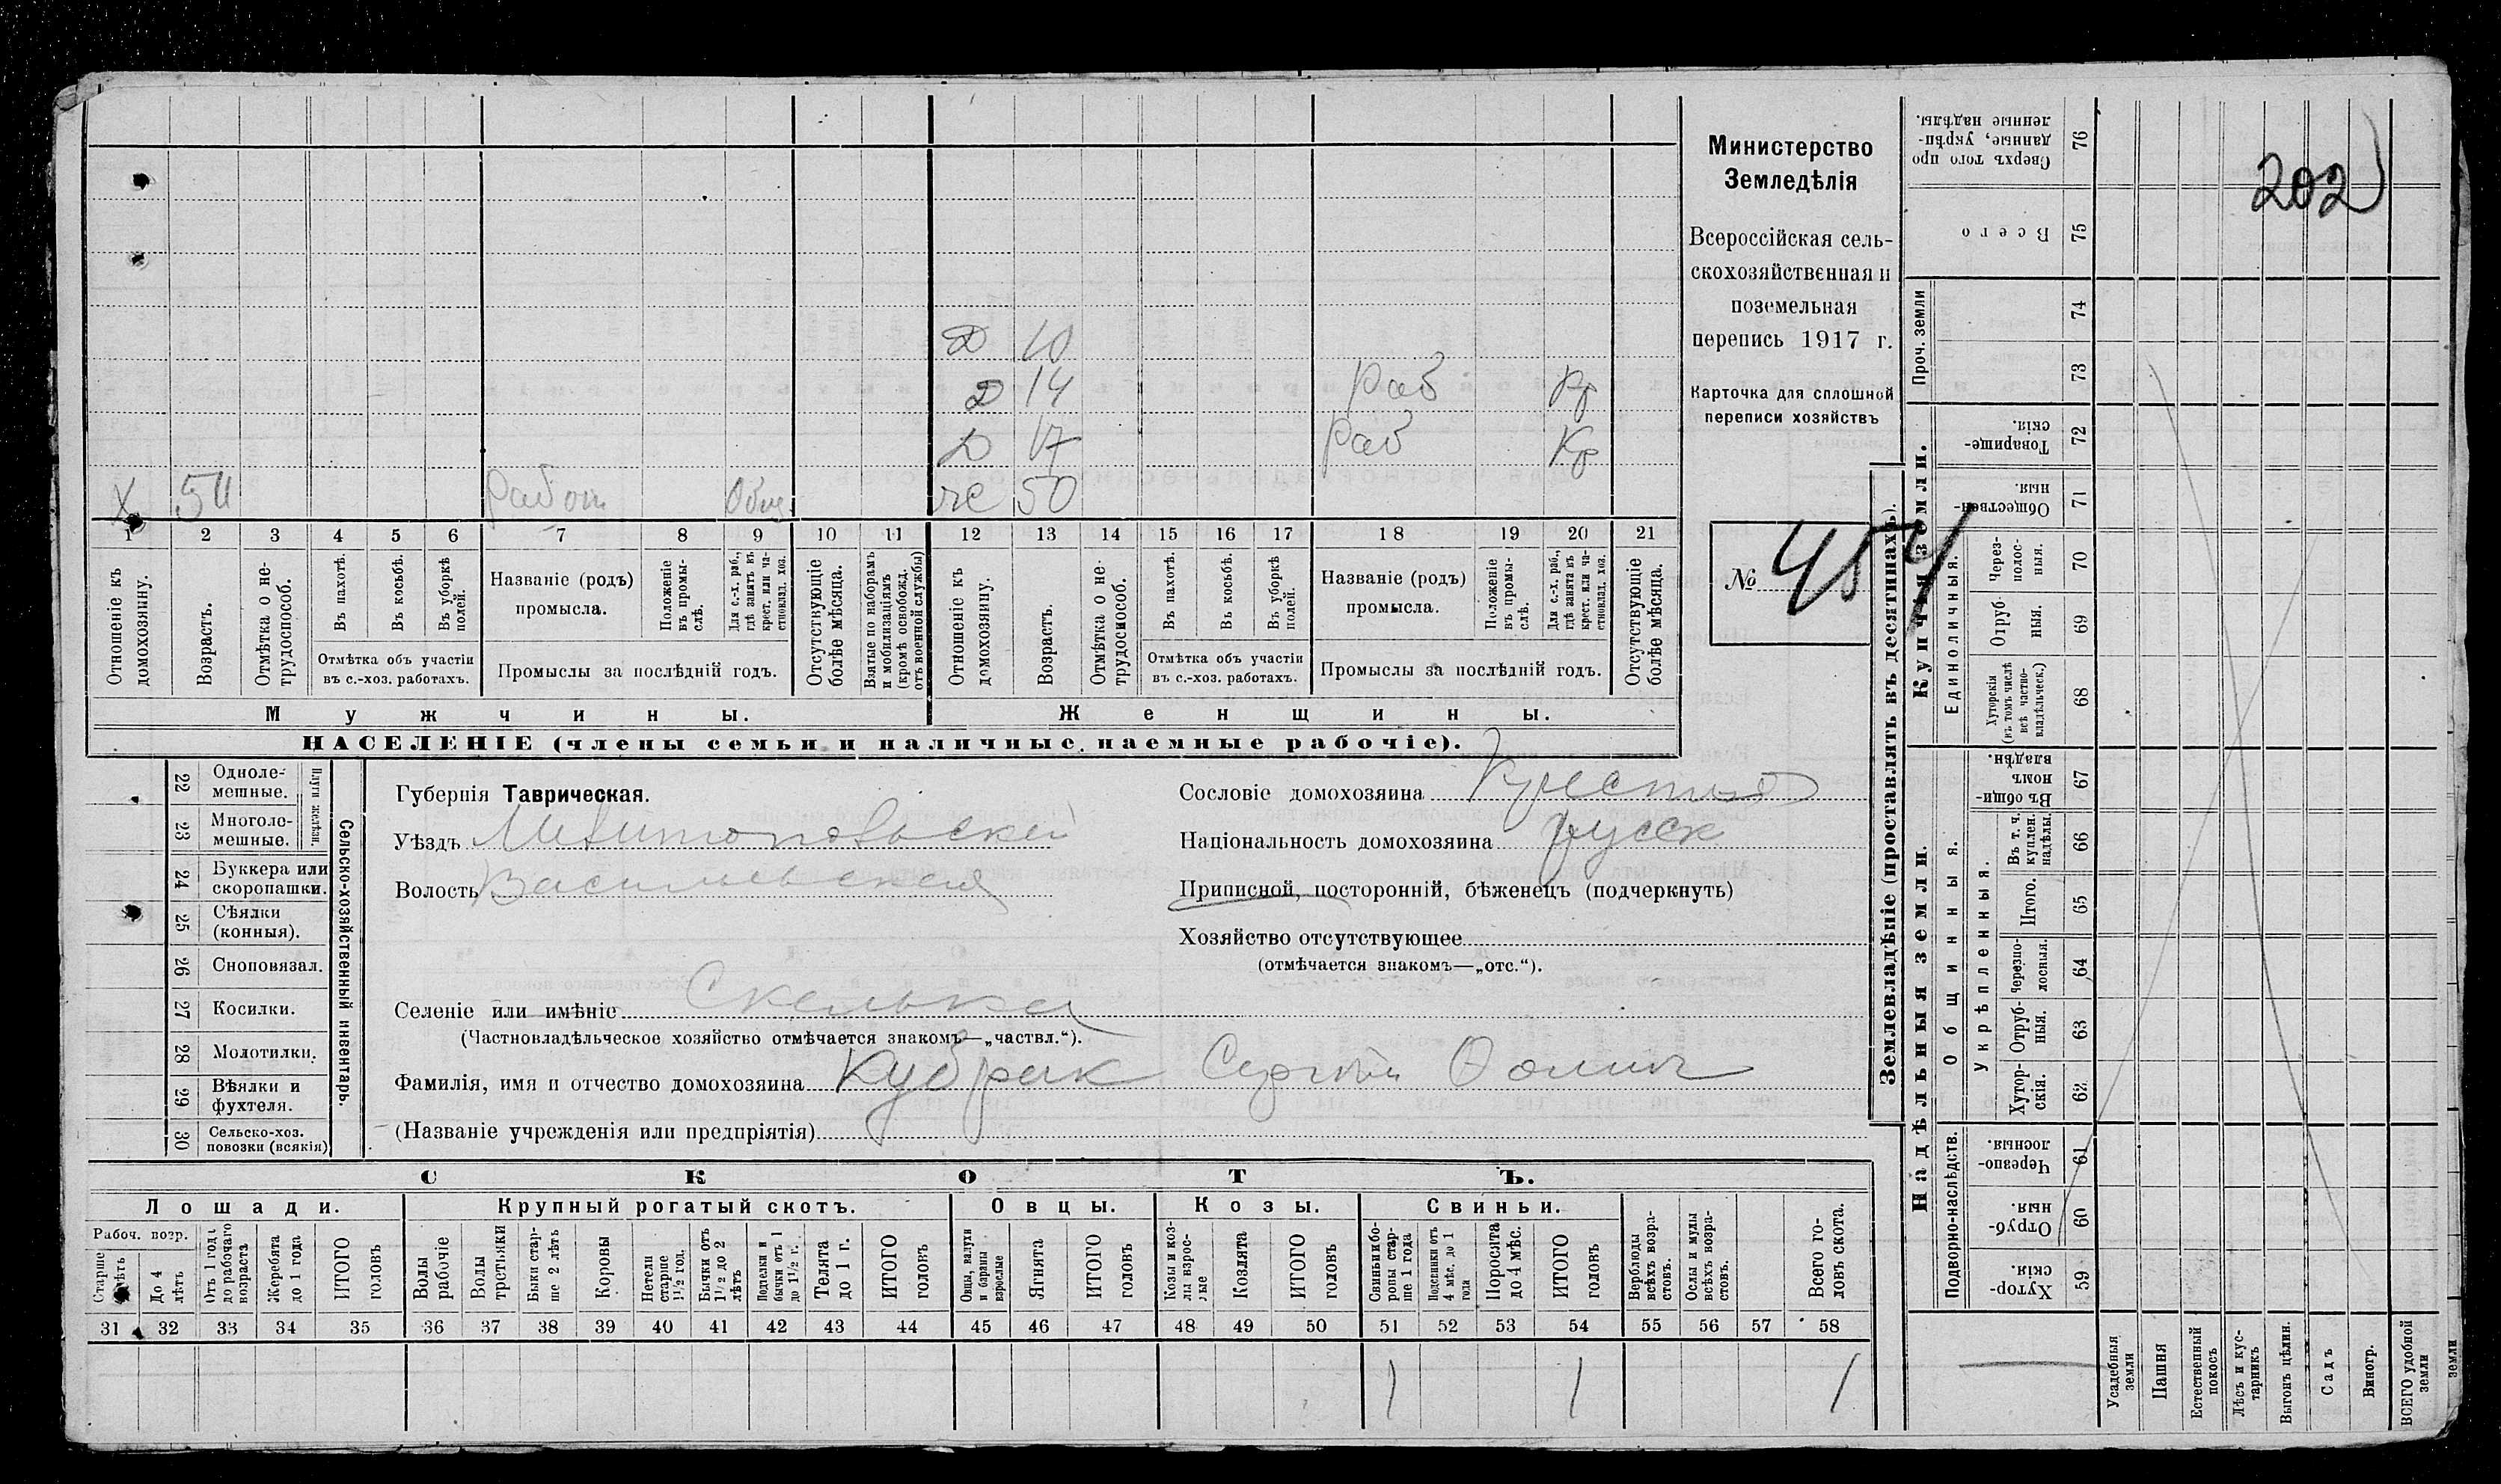 202
Министерство
Земледѣлія
Всероссійская сель-
скохозяйственная и
поземельная
перепись 1917 г.
Карточка для сплошной
переписи хозяйствъ
№ 454
Д 10
Д 14 Раб Кр
Д 17 Раб Кр
Х 54 Работ Общ же 50
1 2 3 4 5 6 7 8 9 10 11 12 13 14 15 16 17 18 19 20 21
Отношеніе къ домохозяину.
Возрастъ.
Отмѣтка о не-трудоспособ.
Въ пахотѣ.
Въ косьбѣ.
Въ уборкѣ полей.
Отмѣтка объ участіи
въ с.-хоз. работахъ.
Названіе (родъ)
промысла.
Положеніе въ промы-слѣ.
Для с.-х. раб., гдѣ занятъ въ крест. или ча-стновлад. хоз.
Промыслы за послѣдній годъ.
Отсутствующіе болѣе мѣсяца.
Взятые по наборамъ и мобилизаціямъ (кромѣ освобожд. отъ военной службы)
Отношеніе къ домохозяину.
Возрастъ.
Отмѣтка о не-трудоспособ.
Въ пахотѣ.
Въ косьбѣ.
Въ уборкѣ полей.
Отмѣтка объ участіи
въ с.-хоз. работахъ.
Названіе (родъ)
промысла.
Положеніе въ промы-слѣ.
Для с.-х. раб., гдѣ занята въ крест. или ча-стновлад. хоз.
Промыслы за послѣдній годъ.
Отсутствующіе болѣе мѣсяца.
Мужчины. Женщины.
НАСЕЛЕНІЕ (члены семьи и наличные наемные рабочіе).
Сельско-хозяйственный инвентарь.
Плуги желѣзн.
22 Одноле-мешные.
23 Многоле-мешные.
24 Буккера или скоропашки.
25 Сѣялки (конныя).
26 Сноповязал.
27 Косилки.
28 Молотилки.
29 Вѣялки и фухтеля.
30 Сельско-хоз. повозки (всякія)
Губернія Таврическая.
Уѣздъ Мелитопольский
Волость Васильевская
Сословіе домохозяина Крестьян
Національность домохозяина русск
Приписной, посторонній, бѣженецъ (подчеркнуть)
Хозяйство отсутствующее
(отмѣчается знакомъ—„отс.“).
Селеніе или имѣніе Скельки
(Частновладѣльческое хозяйство отмѣчается знакомъ—„частвл.“).
Фамилія, имя и отчество домохозяина Кубрак Сергей Фомич
(Названіе учрежденія или предпріятія)
СКОТЪ.
Лошади. Крупный рогатый скотъ. Овцы. Козы. Свиньи.
Рабоч. возр.
Старше 4 лѣтъ
До 4 лѣтъ
Отъ 1 года до рабочаго возраста
Жеребята до 1 года
ИТОГО головъ
Волы рабочіе
Волы третьяки
Быки стар-ше 2 лѣтъ
Коровы
Нетели старше 1½ год.
Бычки отъ 1½ до 2 лѣтъ
Подтелки и бычки отъ 1 до 1½ г.
Телята до 1 г.
ИТОГО головъ
Овцы, валухи и бараны взрослые
Ягнята
ИТОГО головъ
Козы и коз-лы взрос-лые
Козлята
ИТОГО головъ
Свиньи бо-ровы стар-ше 1 года
Подсвинки отъ 4 мѣс. до 1 года
Поросята до 4 мѣс.
ИТОГО головъ
Верблюды всѣхъ возра-стовъ.
Ослы и мулы всѣхъ возра-стовъ.
Всего го-ловъ скота.
31 32 33 34 35 36 37 38 39 40 41 42 43 44 45 46 47 48 49 50 51 52 53 54 55 56 57 58
1 1 1
Землевладѣніе (проставлять въ десятинахъ).
Надѣльныя земли. Купчія земли. Проч. земли
Подворно-наслѣдств.
Общинныя.
Укрѣпленныя.
Единоличныя.
59 Хутор-скія.
60 Отруб-ныя.
61 Черезпо-лосныя.
62 Хутор-скія.
63 Отруб-ныя.
64 Черезпо-лосныя.
65 Итого.
66 Въ т. ч. куплен. надѣлы.
67 Въ общи-номъ владѣн.
68 Хуторскія (въ томъ числѣ всѣ частно-владѣльческ.)
69 Отруб-ныя.
70 Через-полос-ныя.
71 Обществен-ныя.
72 Товарище-скія.
73
74
75 Всего
76 Сверхъ того про-данные, укрѣп-ленные надѣлы.
Усадебныя земли
Пашня
Естественный покосъ
Лѣсъ и кус-тарникъ
Выгонъ цѣлин.
Садъ
Виногр.
ВСЕГО удобной земли
земли